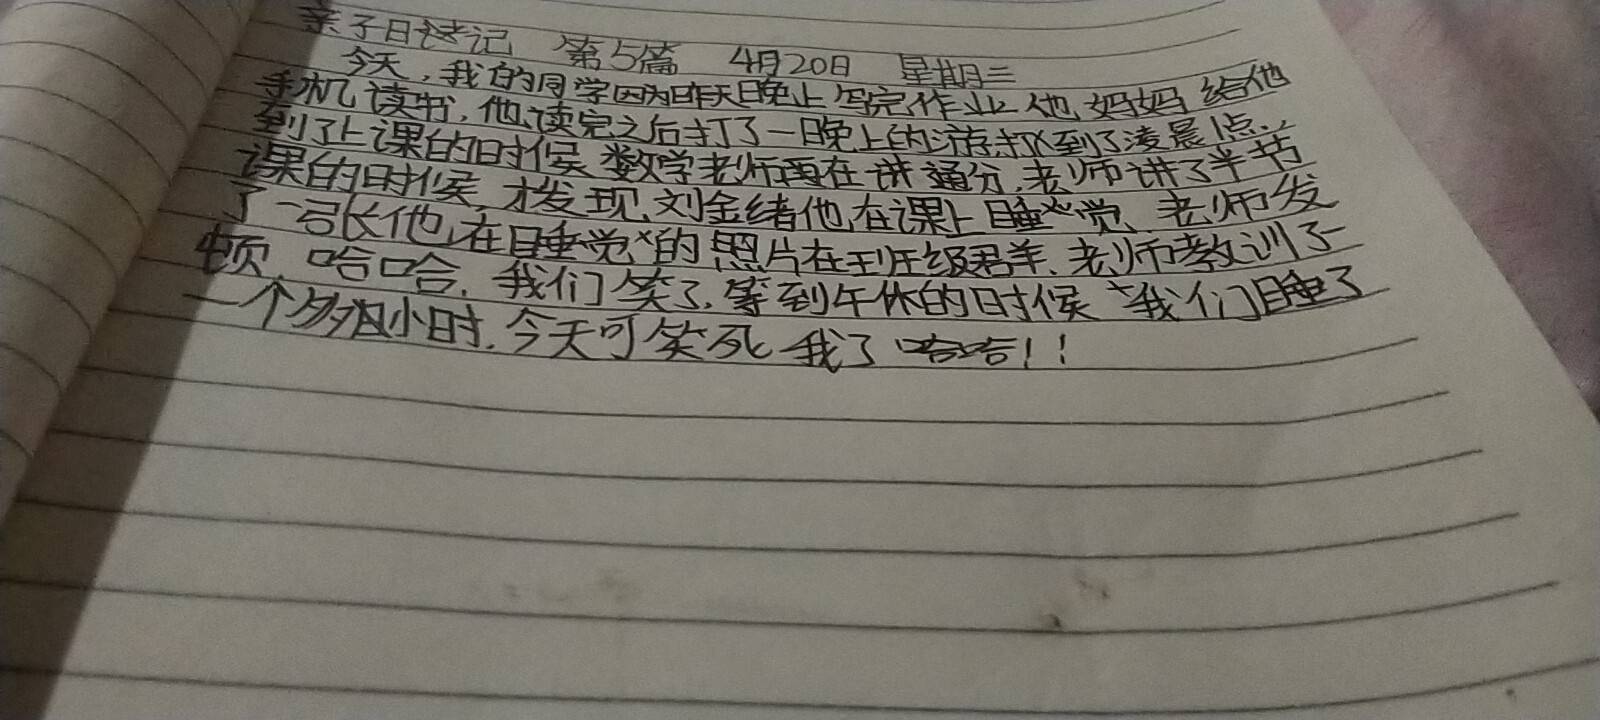 亲子日记 第5篇 4月20日 星期三
今天,我的同学因为昨天晚上写完作业他妈妈给他
手机读书,他读完之后打了一晚上的游戏到了凌晨1点,
到了上课的时候数学老师再在讲通分,老师讲了半节
课的时候,才发现,刘金绪他在课上睡觉,老师发
了一张他在睡觉的照片在班级群,老师教训了一
顿,哈哈,我们笑了,等到午休的时候我们睡了
一个多小时,今天可笑死我了哈哈!!